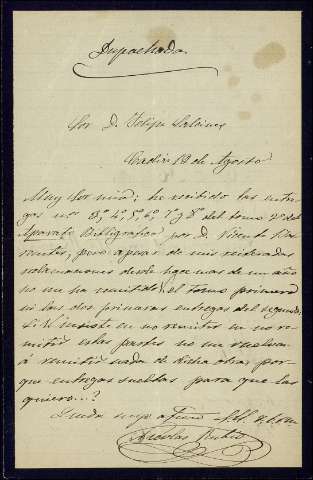 Despachada
Sor D. Felipe
Cadiz 18 de Agosto
Muy Sor mio: he recibido las entre-
gas nos 3ª, 4ª, 5ª, 6ª, 7ª y 8ª del tomo 2º del
Aparato Bibligrafico por D. Vicente Ba-
rrantes, pero apesar de mis reiteradas
reclamaciones desde hace mas de un año
no me ha remitido el tomo primero
ni las dos primeras entregas del segundo.
Si V. insiste en no remitir en no re-
mitir estas partes no me vuelva
á remitir nada de dicha obra, por-
que entregas sueltas para que las
quiero...?
Queda suyo afmo S.S. q.b.s.m
Nicolas Rubio